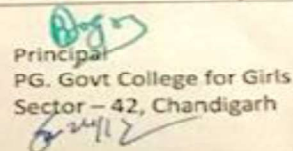 Principal
PG. Govt College for Girls
Sector – 42, Chandigarh